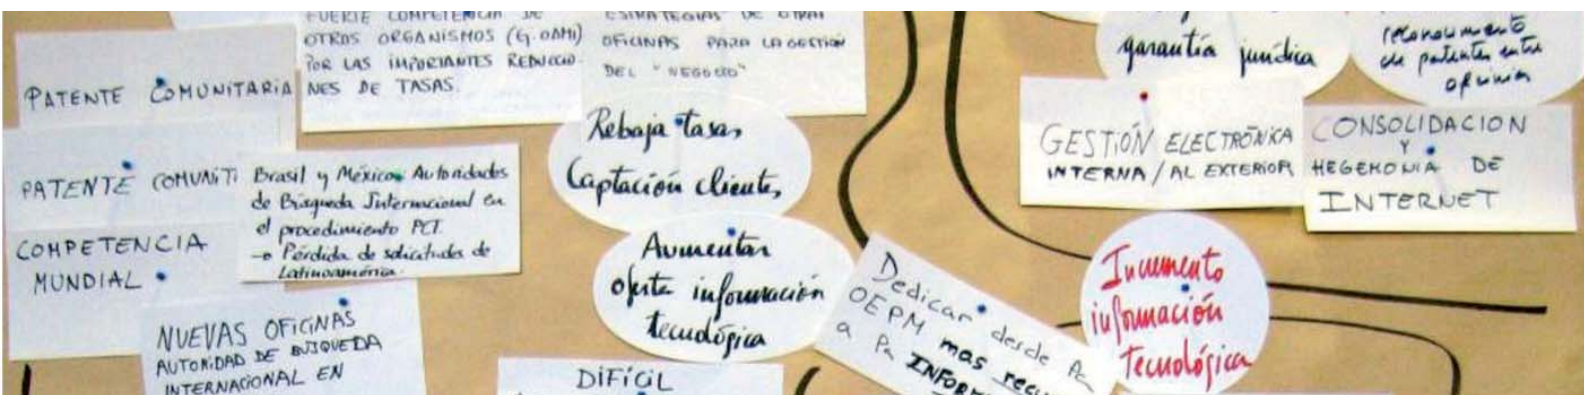 PATENTE COMUNITARIA
PATENTE COMUNITI
COMPETENCIA
MUNDIAL
FUERTE COMPETENCIA DE
OTROS ORGANISMOS (G. OAMI)
POR LAS IMPORTANTES REDUCCIO-
NES DE TASAS.
ESTRATEGIAS DE OTRAS
OFICINAS PARA LA GESTIÓN
DEL "NEGOCIO"
Brasil y México Autoridades
de Búsqueda Internacional en
el procedimiento PCT.
→ Pérdida de solicitudes de
Latinoamérica.
NUEVAS OFICINAS
AUTORIDAD DE BUSQUEDA
INTERNACIONAL EN
Rebaja tasas,
Captación clientes,
Aumentar
oferta información
tecnológica
DIFÍCIL
Dedicar desde la
OEPM mas recu
a la INFOR
garantía jurídica
reconocimiento
de patentes entre
oficinas
GESTIÓN ELECTRÓNICA
INTERNA / AL EXTERIOR
CONSOLIDACION
Y
HEGEMONIA DE
INTERNET
Incremento
información
tecnológica